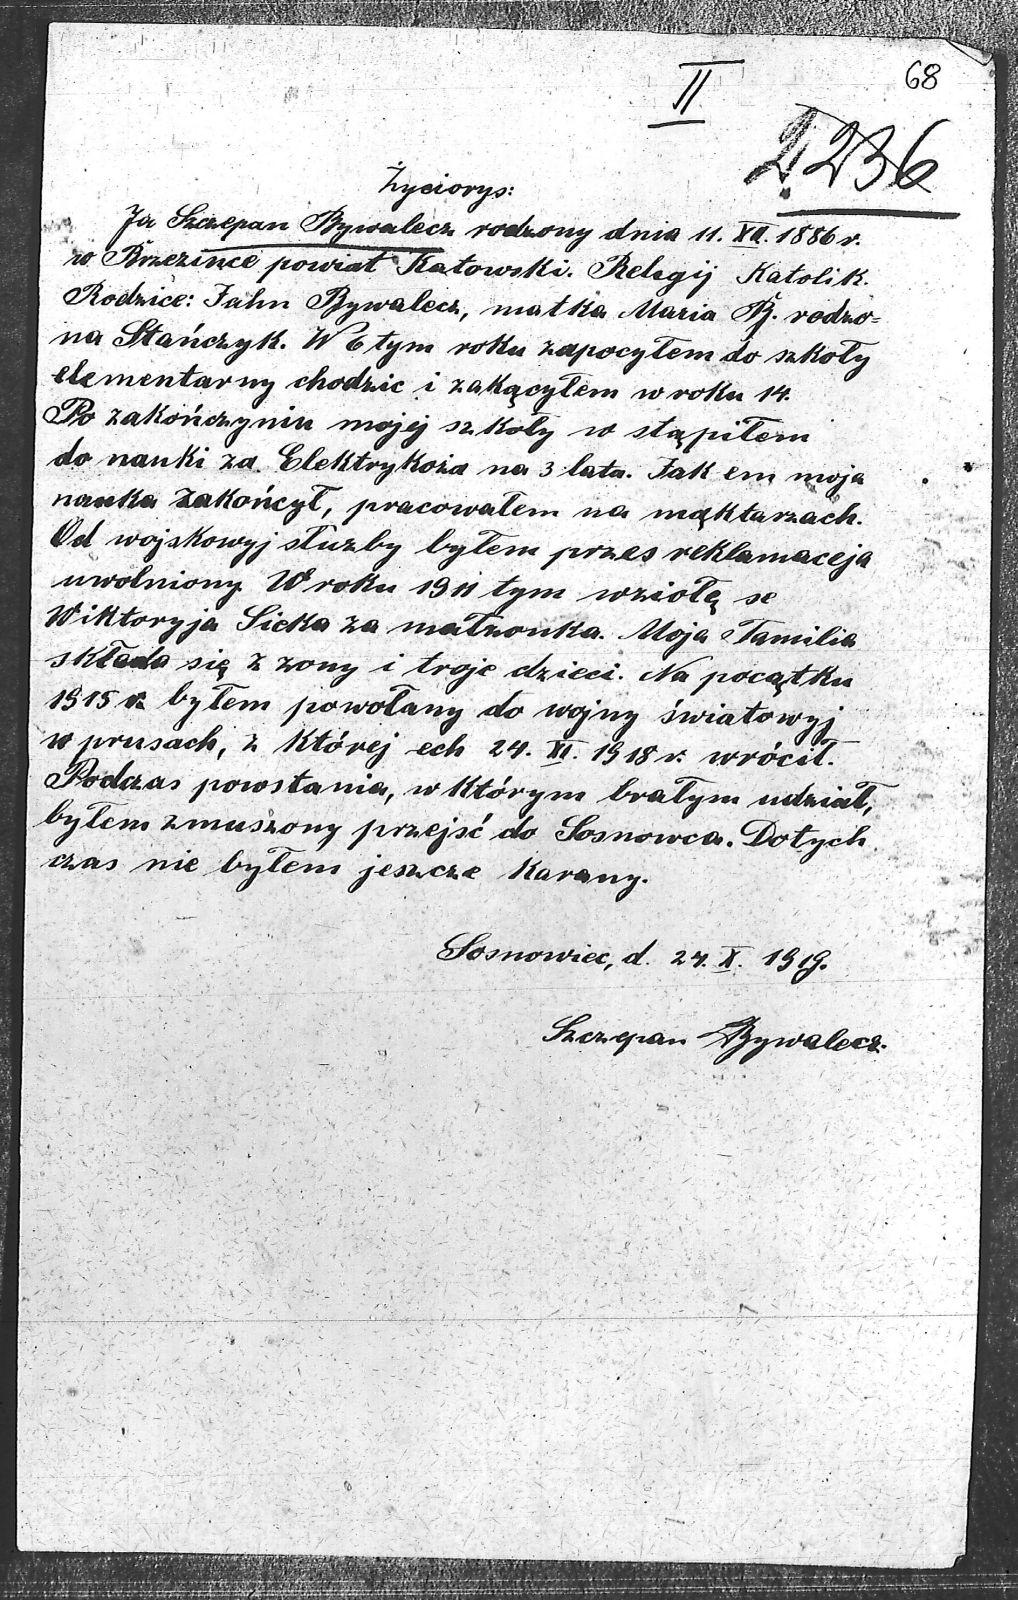 68
II
2236
Życiorys:
Ja Szczepan Bywalecz rodzony dnia 11. XII. 1886 r.
w Brzezince powiat Katowski. Religij Katolik.
Rodzice: Jahn Bywalecz, matka Maria B. rodzo=
na Stańczyk. W 6 tym roku zapocyłem do szkoły
elementarny chodzic i zakącyłem w roku 14.
Po zakończyniu mojej szkoły w stąpiłem
do nauki za Elektrykoża na 3 lata. Jak em moja
nauka zakończył, pracowałem na mąktarzach.
Od wojskowyj służby byłem przes reklamaceja
uwolniony. W roku 1911 tym wziołę se
Wiktoryja Sicka za małzonka. Moja Familia
składa się z zony i troje dzieci. Na początku
1915 r. byłem powołany do wojny światowyj
w prusach, z której ech 24. XI. 1918 r. wrócił.
Podczas powstania, w którym brałym udział,
byłem zmuszony przejść do Sosnowca. Dotych
czas nie byłem jeszcze karany.
Sosnowiec, d. 24. X. 1919.
Szczepan Bywalecz.